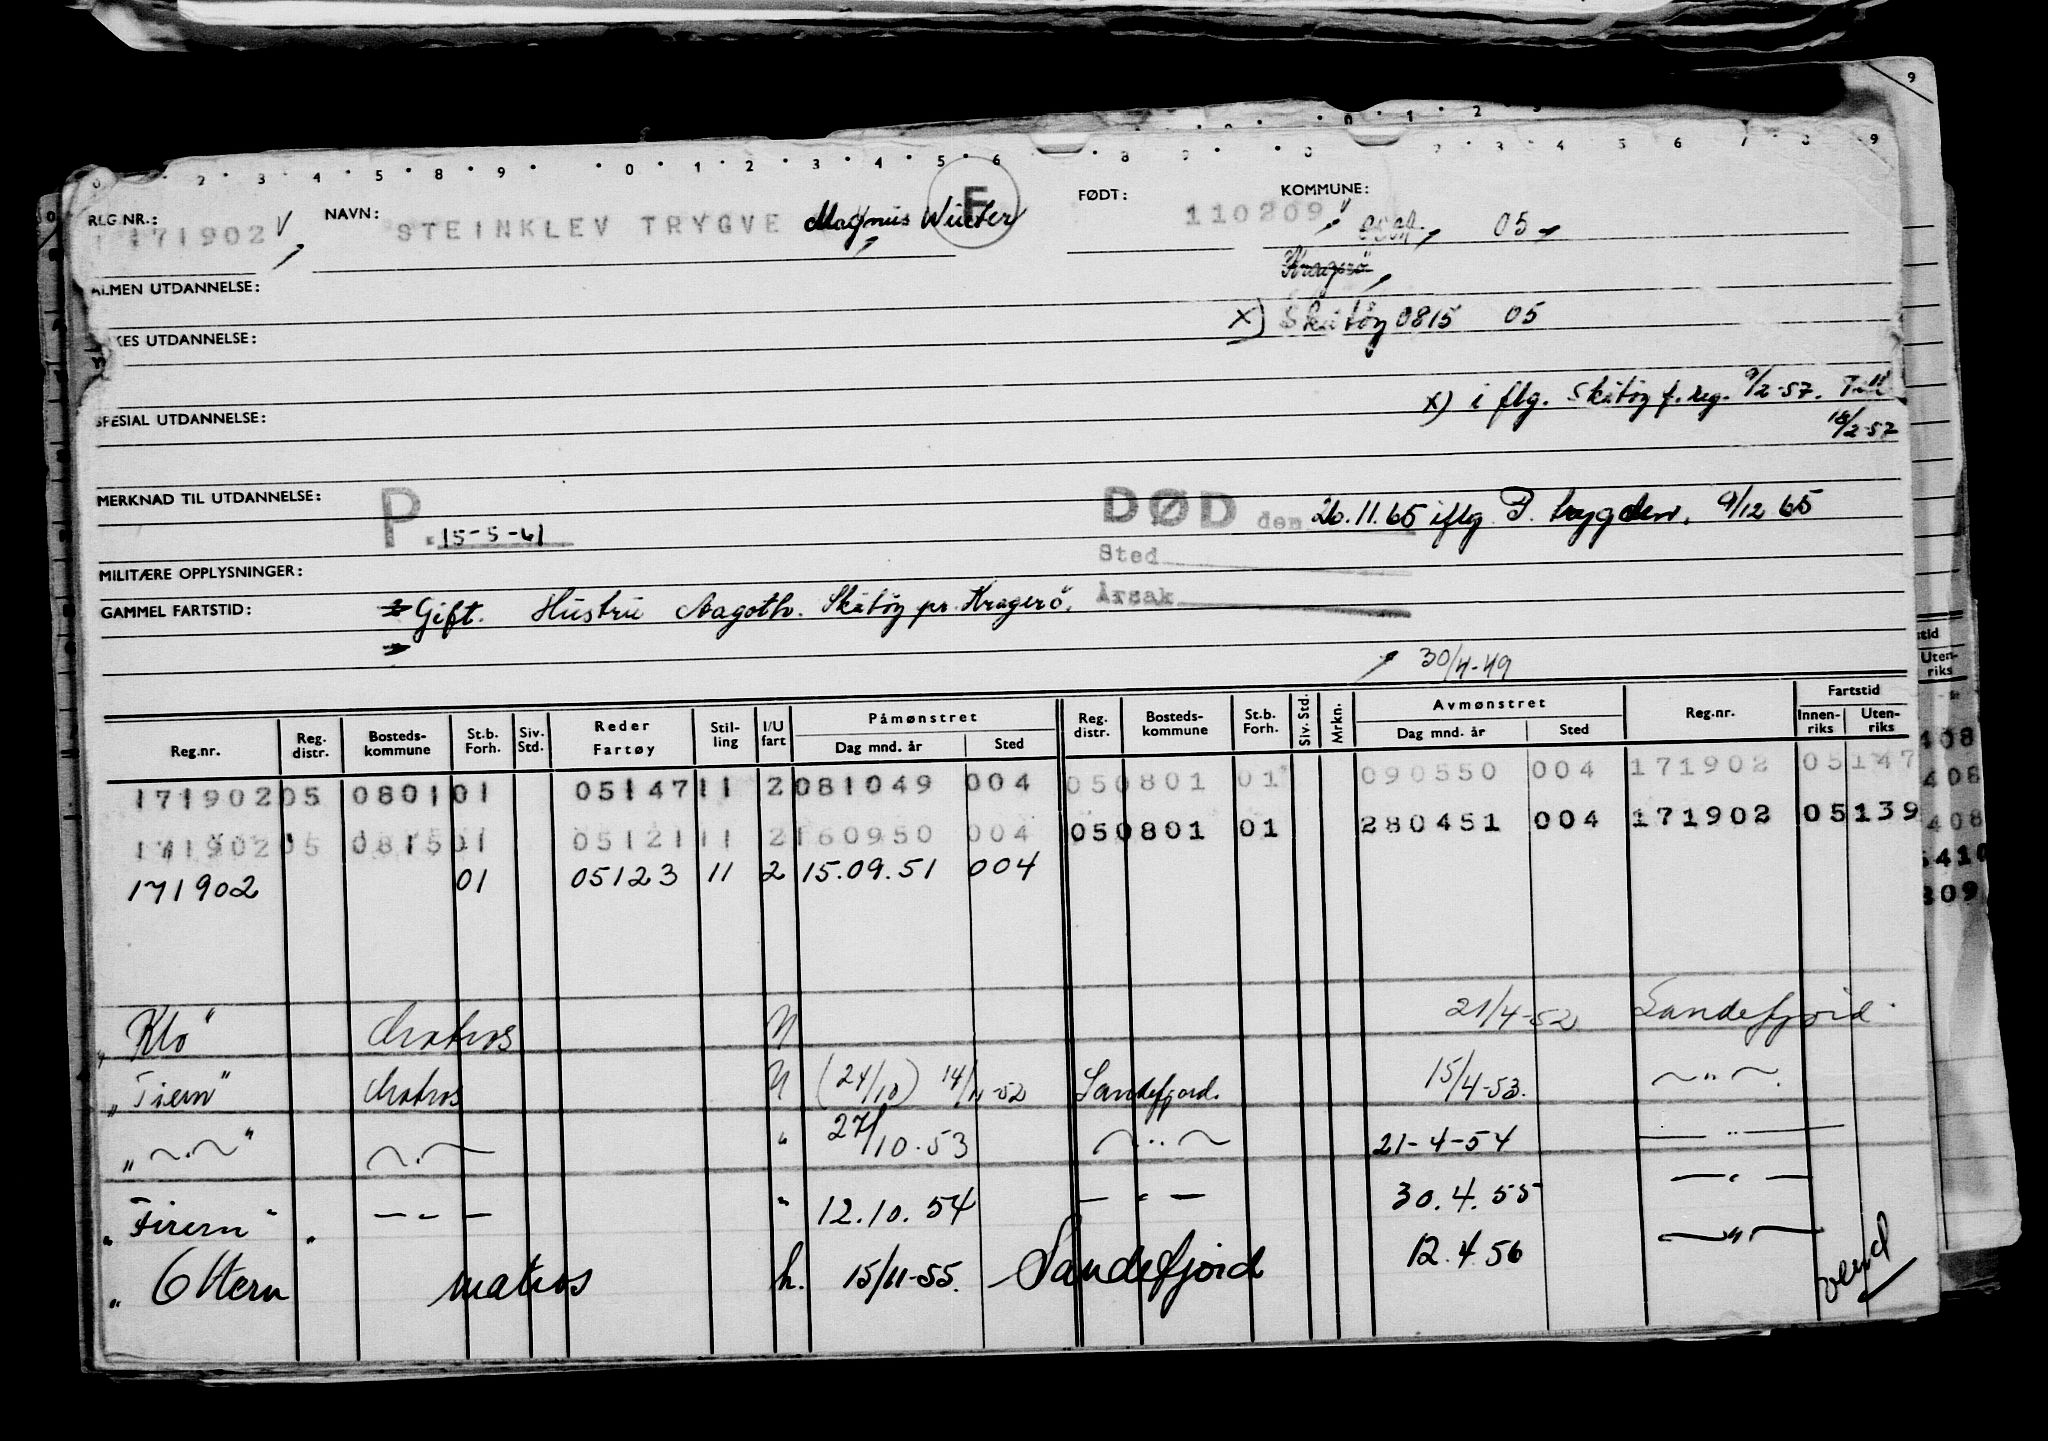 REG.NR.: 171902 NAVN: STEINKLEV TRYGVE Magnus E FØDT: 110209 KOMMUNE: 05
Kragerø
ALMEN UTDANNELSE:
x) Skåtøy 0815 05
UTDANNELSE:
x) i flg. Skåtøy f. reg. 9/2-57.
18/2-57
SPESIAL UTDANNELSE:
MERKNAD TIL UTDANNELSE: P. 15-5-61 DØD den 26.11.65 iflg P. trygden, 9/12 65
Sted
MILITÆRE OPPLYSNINGER:
Årsak
GAMMEL FARTSTID: Gift. Hustru Aagoth. Skåtøy pr. Kragerø.
30/4-49
Reg.nr. Reg. distr. Bosteds-kommune St.b. Forh. Siv. Std. Reder Fartøy Stil-ling I/U fart Påmønstret Dag mnd. år Sted Reg. distr. Bosteds-kommune St.b. Forh. Siv. Std. Mrkn. Avmønstret Dag mnd. år Sted Reg.nr. Fartstid Innen-riks Uten-riks
171902 05 0801 01 05147 11 2 081049 004 05 0801 01 090550 004 171902 05 147
171902 05 0815 01 05121 11 2 160950 004 05 0801 01 280451 004 171902 05 139
171902 01 05123 11 2 15.09.51 004
"Klo" Matros U 21/4-52 Sandefjord.
"Tiern" Matros U (24/10) 14/11-52 Sandefjord. 15/4-53. ~"~.
"~.~" ~.~ " 27/10.53 ~"~ 21-4-54 —"—
"Firern" —"— " 12.10.54 —"— 30.4.55 —"—
" Ottern matros h. 15/11-55. Sandefjord 12.4.56 ~"~
vend